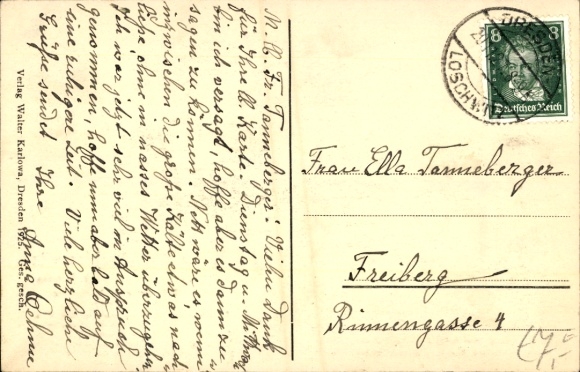 M. l. Fr. Tanneberger! Vielen Dank
für Ihre lb. Karte. Dienstag u. Mittwoch
bin ich versagt, hoffe aber es dann zu
sagen zu können. Nett wäre es, wenn
inzwischen die große Kälte etwas nach-
ließe, ohne in nasses Wetter überzugehen.
Ich war jetzt sehr viel in Anspruch
genommen, hoffe nun aber bald auf
eine ruhigere Zeit. Viele herzliche
Grüße sendet Ihre
Anna Oehme
Verlag Walter Karlowa, Dresden 1925. Ges. gesch.
DRESDEN
LOSCHWITZ
8 8
Deutsches Reich
Frau Ella Tanneberger
Freiberg
Rinnengasse 4
17,-